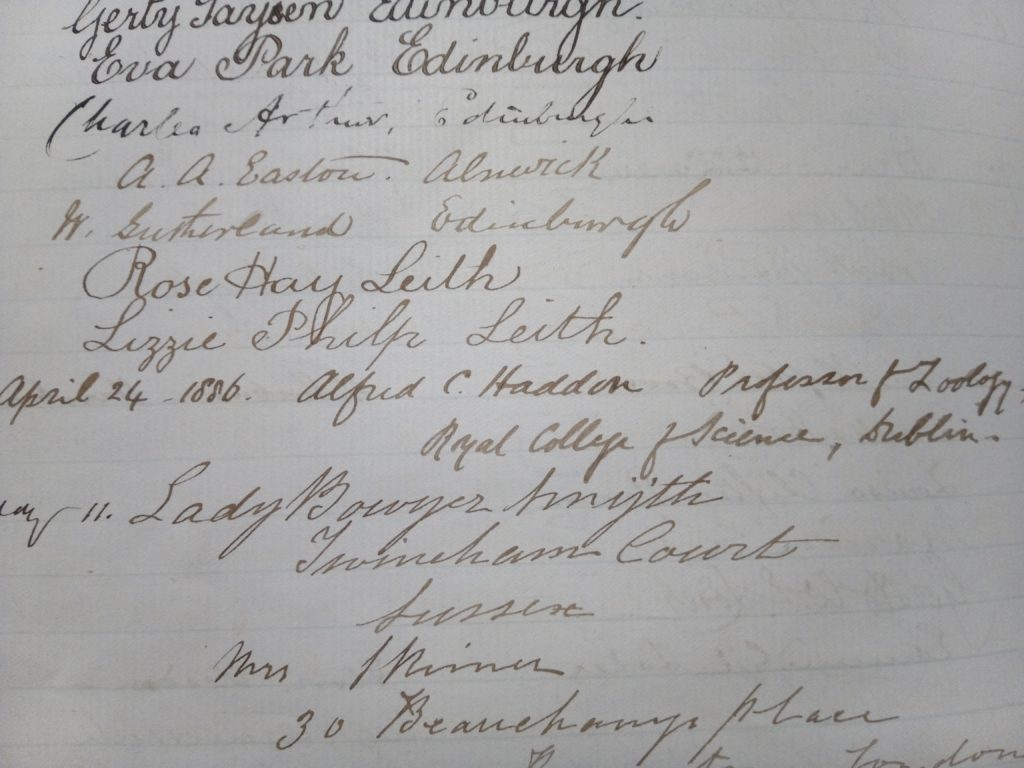 Gerty Edinburgh.
Eva Park Edinburgh
Charles Arthur, Edinburgh
A. A. Easton. Alnwick
W. Sutherland Edinburgh
Rose Hay Leith
Lizzie Philp Leith.
April 24 - 1886. Alfred C. Haddon Professor of Zoology,
Royal College of Science, Dublin.
11. Lady Bowyer Smijth
Twineham Court
Sussex
Mrs Skinner
30 Beauchamp place
London